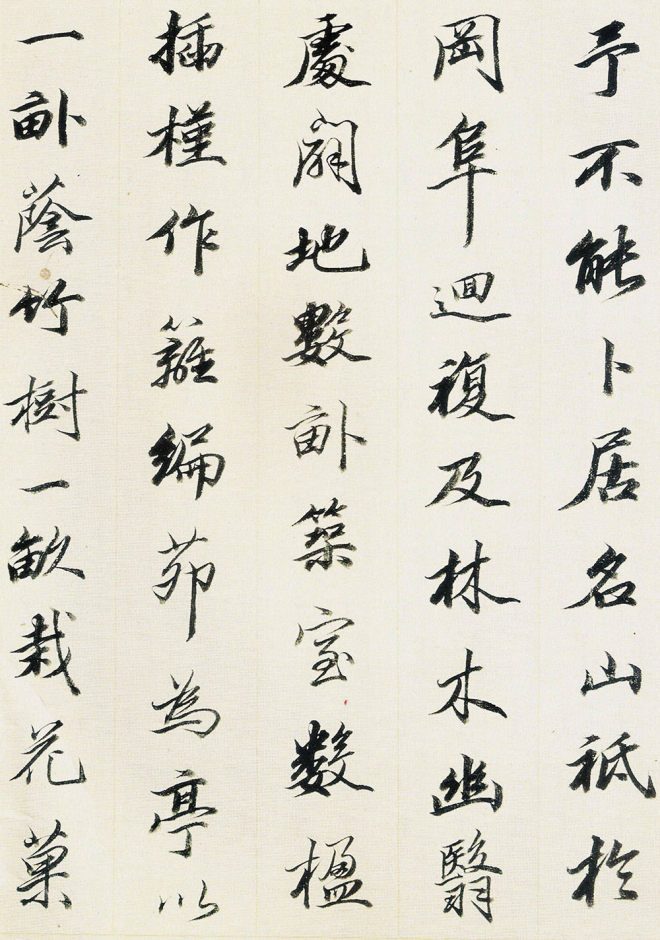 予不能卜居名山祗於
岡阜迴複及林木幽翳
處闢地數畝築室數楹
插槿作籬編茆為亭以
一畝蔭竹樹一畝栽花菓